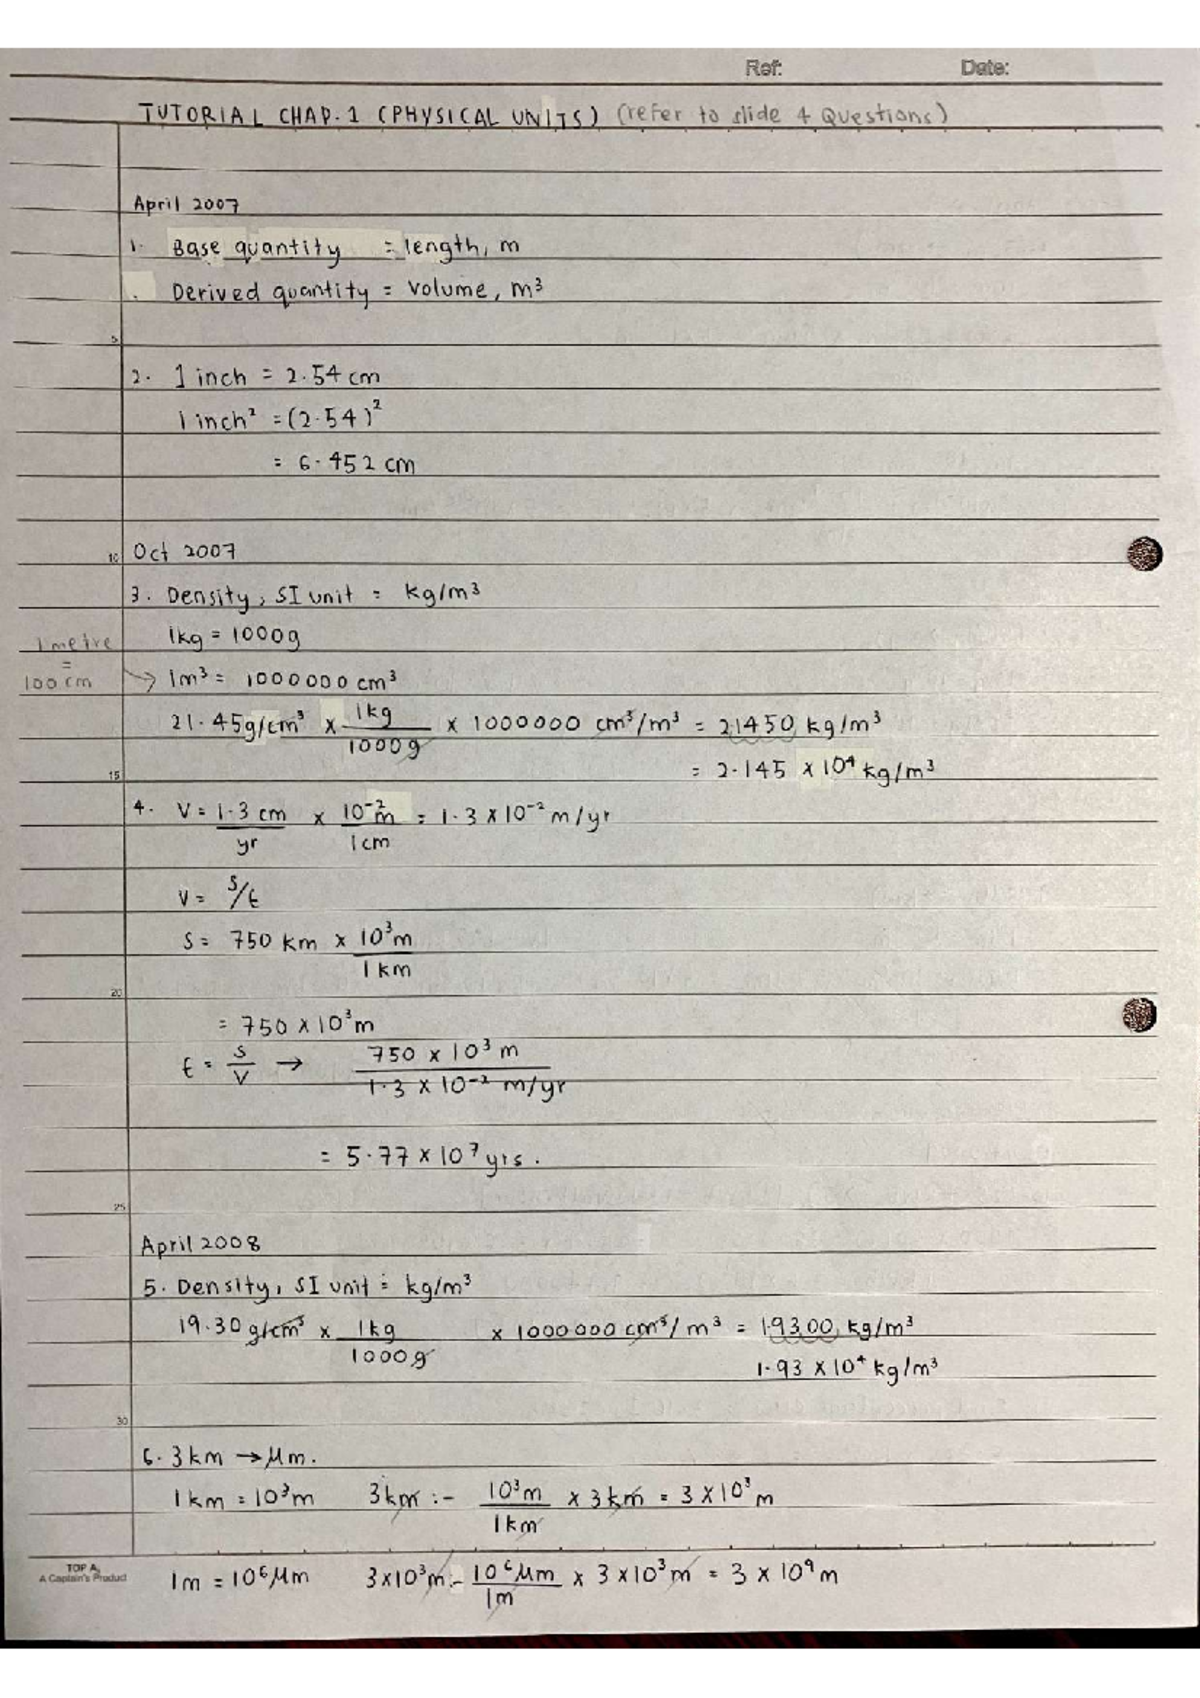 Ref: Date:
TUTORIAL CHAP. 1 (PHYSICAL UNITS) (refer to slide 4 Questions)
April 2007
1. Base quantity = length, m
Derived quantity = Volume, m³
5
2. 1 inch = 2.54 cm
1 inch² = (2.54)²
= 6.452 cm
10 Oct 2007
3. Density, SI unit = kg/m³
1kg = 1000g
1 metre = 100 cm → 1m³ = 1000000 cm³
21.45g/cm³ × 1kg/1000g × 1000000 cm³/m³ = 21450 kg/m³
15 = 2.145 × 10⁴ kg/m³
4. V = 1.3 cm/yr × 10⁻²m/1cm = 1.3 × 10⁻² m/yr
V = s/t
S = 750 km × 10³m/1km
20
= 750 × 10³m
t = s/v → 750 × 10³ m / 1.3 × 10⁻² m/yr
= 5.77 × 10⁷ yrs.
25
April 2008
5. Density, SI unit = kg/m³
19.30 g/cm³ × 1kg/1000g × 1000000 cm³/m³ = 19300 kg/m³
1.93 × 10⁴ kg/m³
30
6. 3km → μm.
1km = 10³m 3km :- 10³m/1km × 3km = 3 × 10³ m
1m = 10⁶μm 3×10³m :- 10⁶μm/1m × 3×10³m = 3 × 10⁹m
TOP A
A Captain's Product